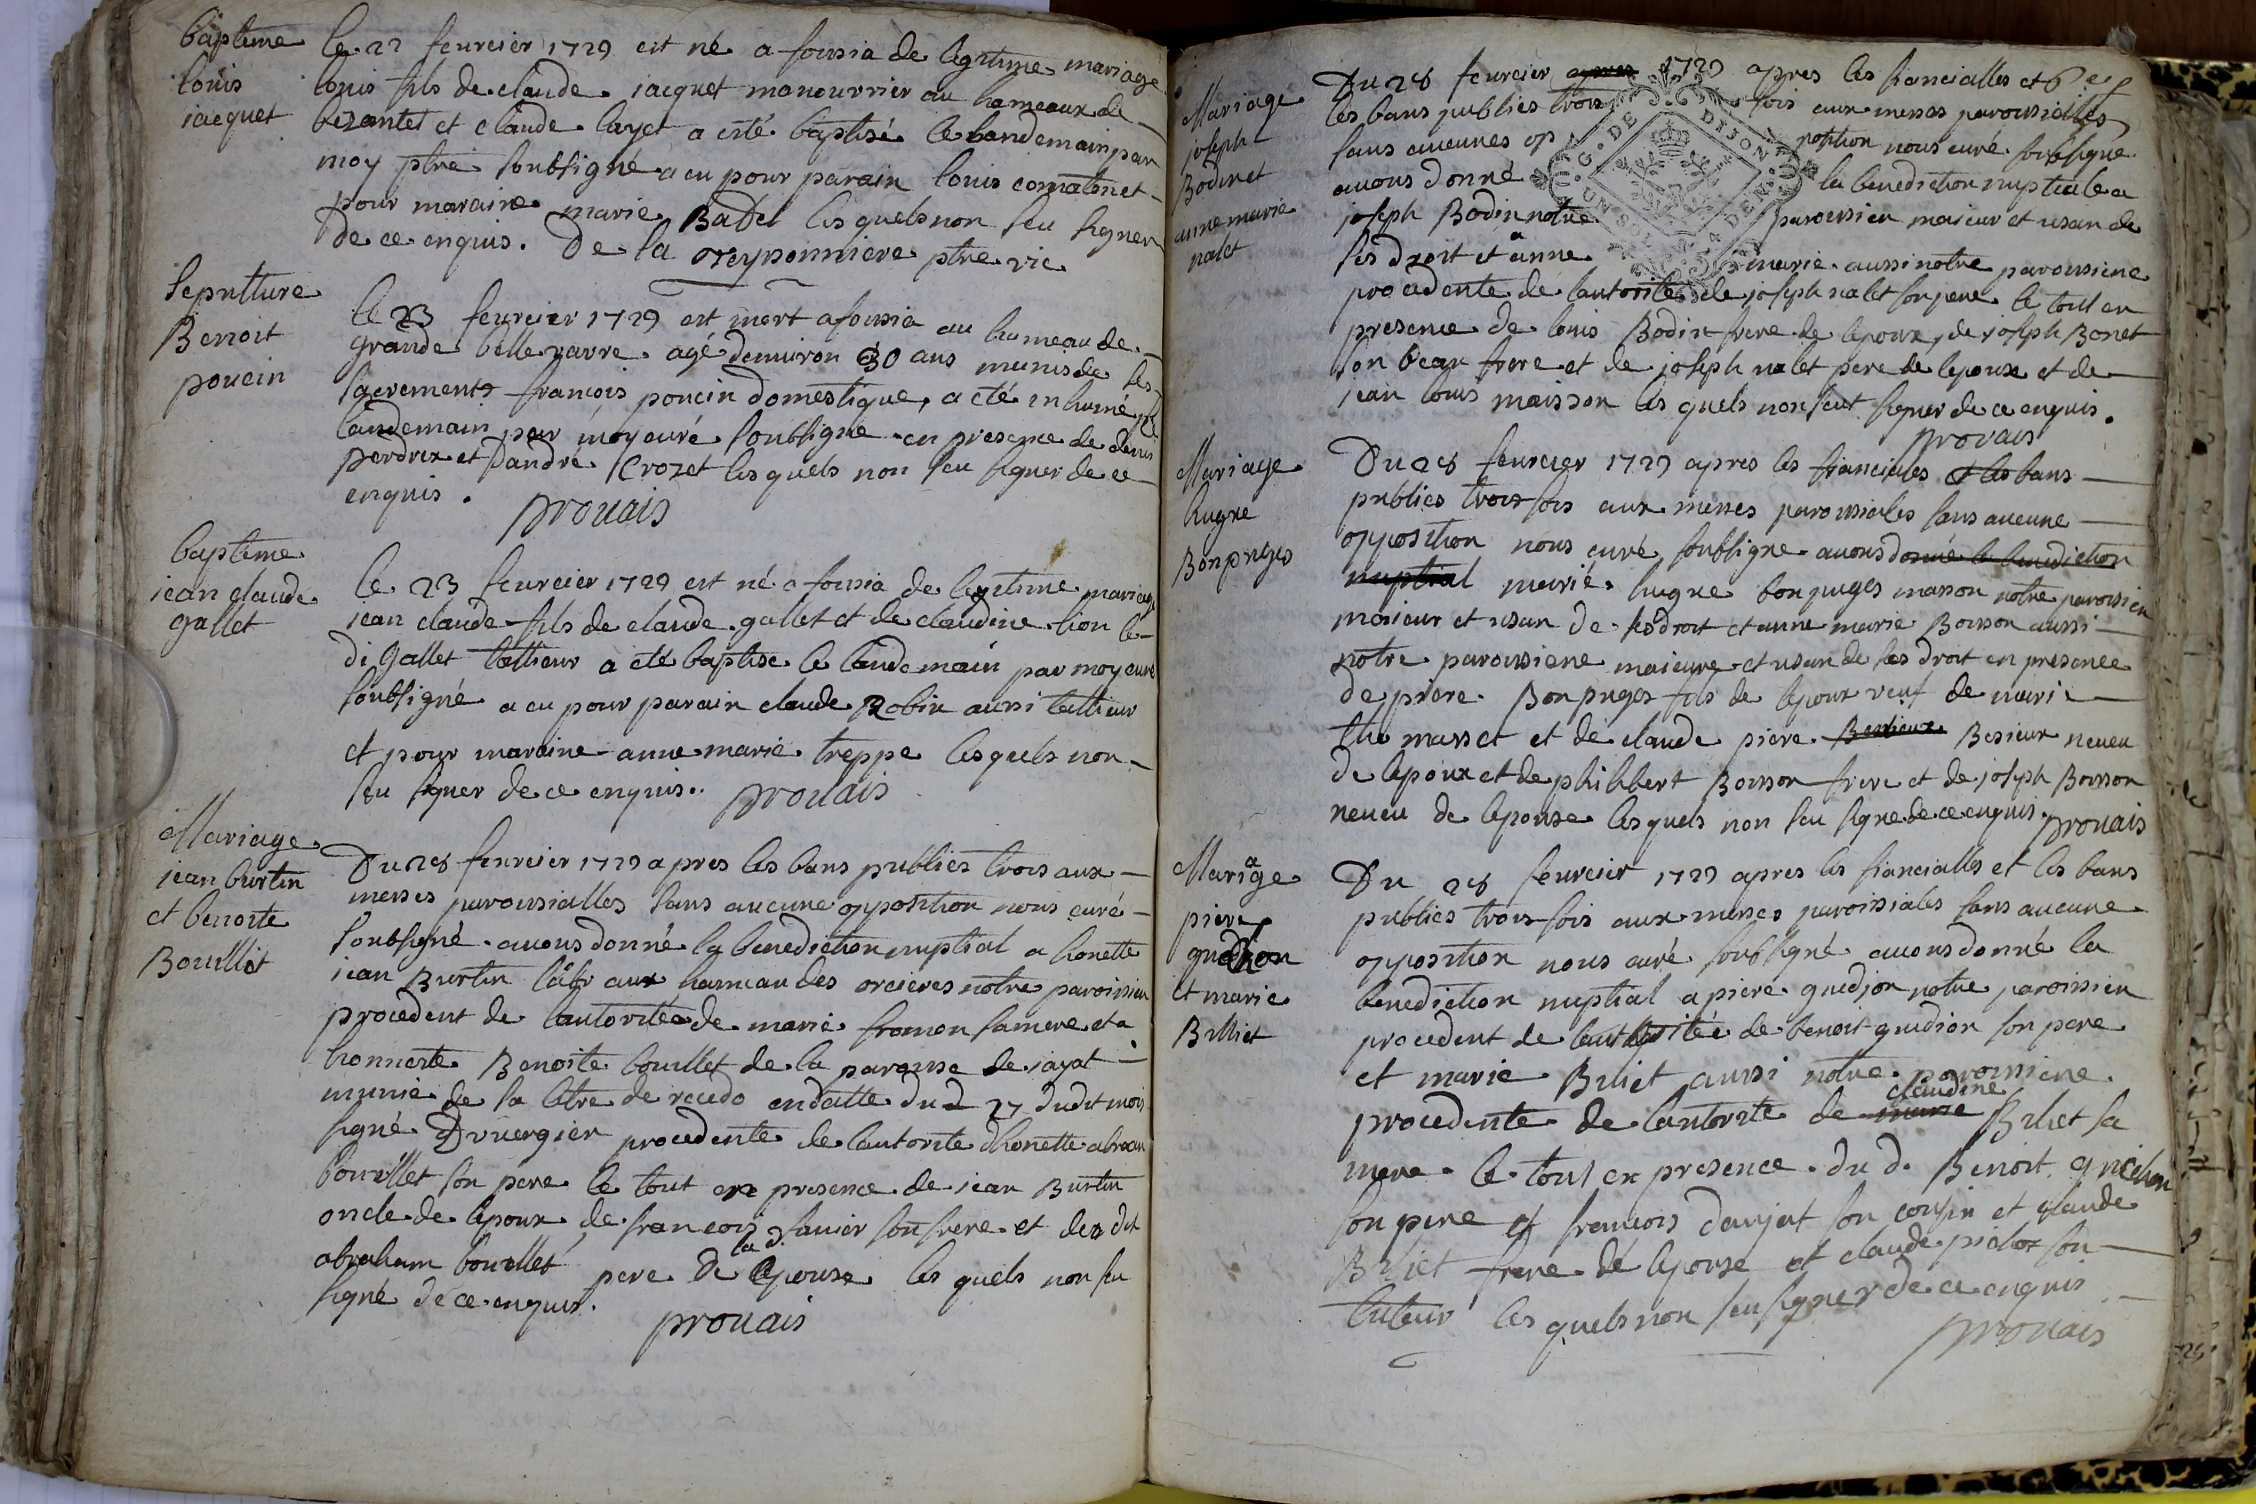 bapteme
louis
iacquet
le 22 feureier 1729 est né a foissia de legitime mariage
louis fils de claude iacquet manouvrier au hameaux de
bezantet et claude layet a esté baptisé le landemain par
moy ptre soubsigné a eu pour parain louis comatonet
pour maraine marie Badel lesquels non seu signer
de ce enquis. De la preyponniere ptre vic
sepulture
Benoit
poncin
le 23 feureier 1729 est mort a foissia au hameau de
grande belle navre agé denviron 30 ans munis de ses
sacrements francois poncin domestique, a eté inhumé le
landemain par moy curé soubsigné en presence de denis
perdrix et dandré Crozet lesquels non seu signer de ce
enquis. prouais
baptême
iean claude
gallet
le 23 feureier 1729 est né a foissia de legitime mariage
iean claude fils de claude gallet et de claudine lion le
di gallet tallieur a eté baptise le landemain par moy curé
soubsigné a eu pour parain claude Robin aussi tallieur
et pour maraine anne marie treppe lesquels non
seu signer de ce enquis. prouais
Mariage
iean burtin
et benoite
Bouillet
Du 28 feureier 1729 apres les bans publiés trois aux
messes paroissialles sans aucune opposition nous curé
soubsigné auons donné la benediction nuptial a honette
iean Burtin labr aux hameau des orcieres notre paroissien
procedent de lautoritée de marie fromon sa mere et a
honneste Benoite bouillet de la paroisse de iayat
munie de sa letre de recedo en datte du d 27 dudit mois
signé Duuergier procedente de lautorite dhonette abraam
bouillet son pere le tout en presence de iean Burtin
oncle de lepoux de francois fauier son frere et de dit
abraham bouillet pere de la d. epouse les quels non seu
signé de ce enquis.
prouais
Mariage
joseph
Bodinet
anne marie
nalet
Du 28 feureier apres 1729 apres les fiancialles et
les bans publiés trois fois aux messes paroissialles
sans aucunes op position nous curé soubsigné
auons donné la benediction nuptiale a
joseph Bodin notre paroissien maieur et usan de
ses droit et a anne marie aussi notre paroissiene
procedente de lautorité de joseph nalet son pere le tout en
presence de louis Bodin frere de lepoux, de joseph Bonet
son beau frere et de joseph nalet pere de lepouse et de
jean louis maisson les quels non seut signer de ce enquis.
prouais
Mariage
hugue
Bonpuges
Du 28 feureier 1729 apres les fiancialles et les bans
publiés trois fois aux messes paroissiales sans aucune
opposition nous curé soubsigné auons donné la benediction
nuptial marié hugue bonpuges masson notre paroissien
maieur et usan de ses droit et anne marie Boisson aussi
notre paroissiene maieure et usan de ses droit en presence
de piere Bonpuges fils de lepoux veuf de mari
the masset et de claude piere Besieux Besieux neueu
de lepoux et de philibert Boisson frere et de joseph Boisson
neueu de lepouse lesquels non seu signe de ce enquis. prouais
Mariage
piere
guedion
et marie
Billiet
Du 28 feureier 1729 apres les fiancialles et les bans
publiés trois fois aux messes paroissiales sans aucune
opposition nous curé soubsigné auons donné la
benediction nuptial a piere guedion notre paroissien
procedent de lautoritée de benoit guidion son pere
et marie Biliet aussi notre paroissiene
procedente de lautorite de marie claudine Biliet sa
mere le tout en presence du d. Benoit
son pere et francois danjat son cousin et claude
Biliet frere de lepouse et claude pichot son
tuteur les quels non seu signer de ce enquis
prouais
G. DE DIJON
UN SOL 4 DEN.